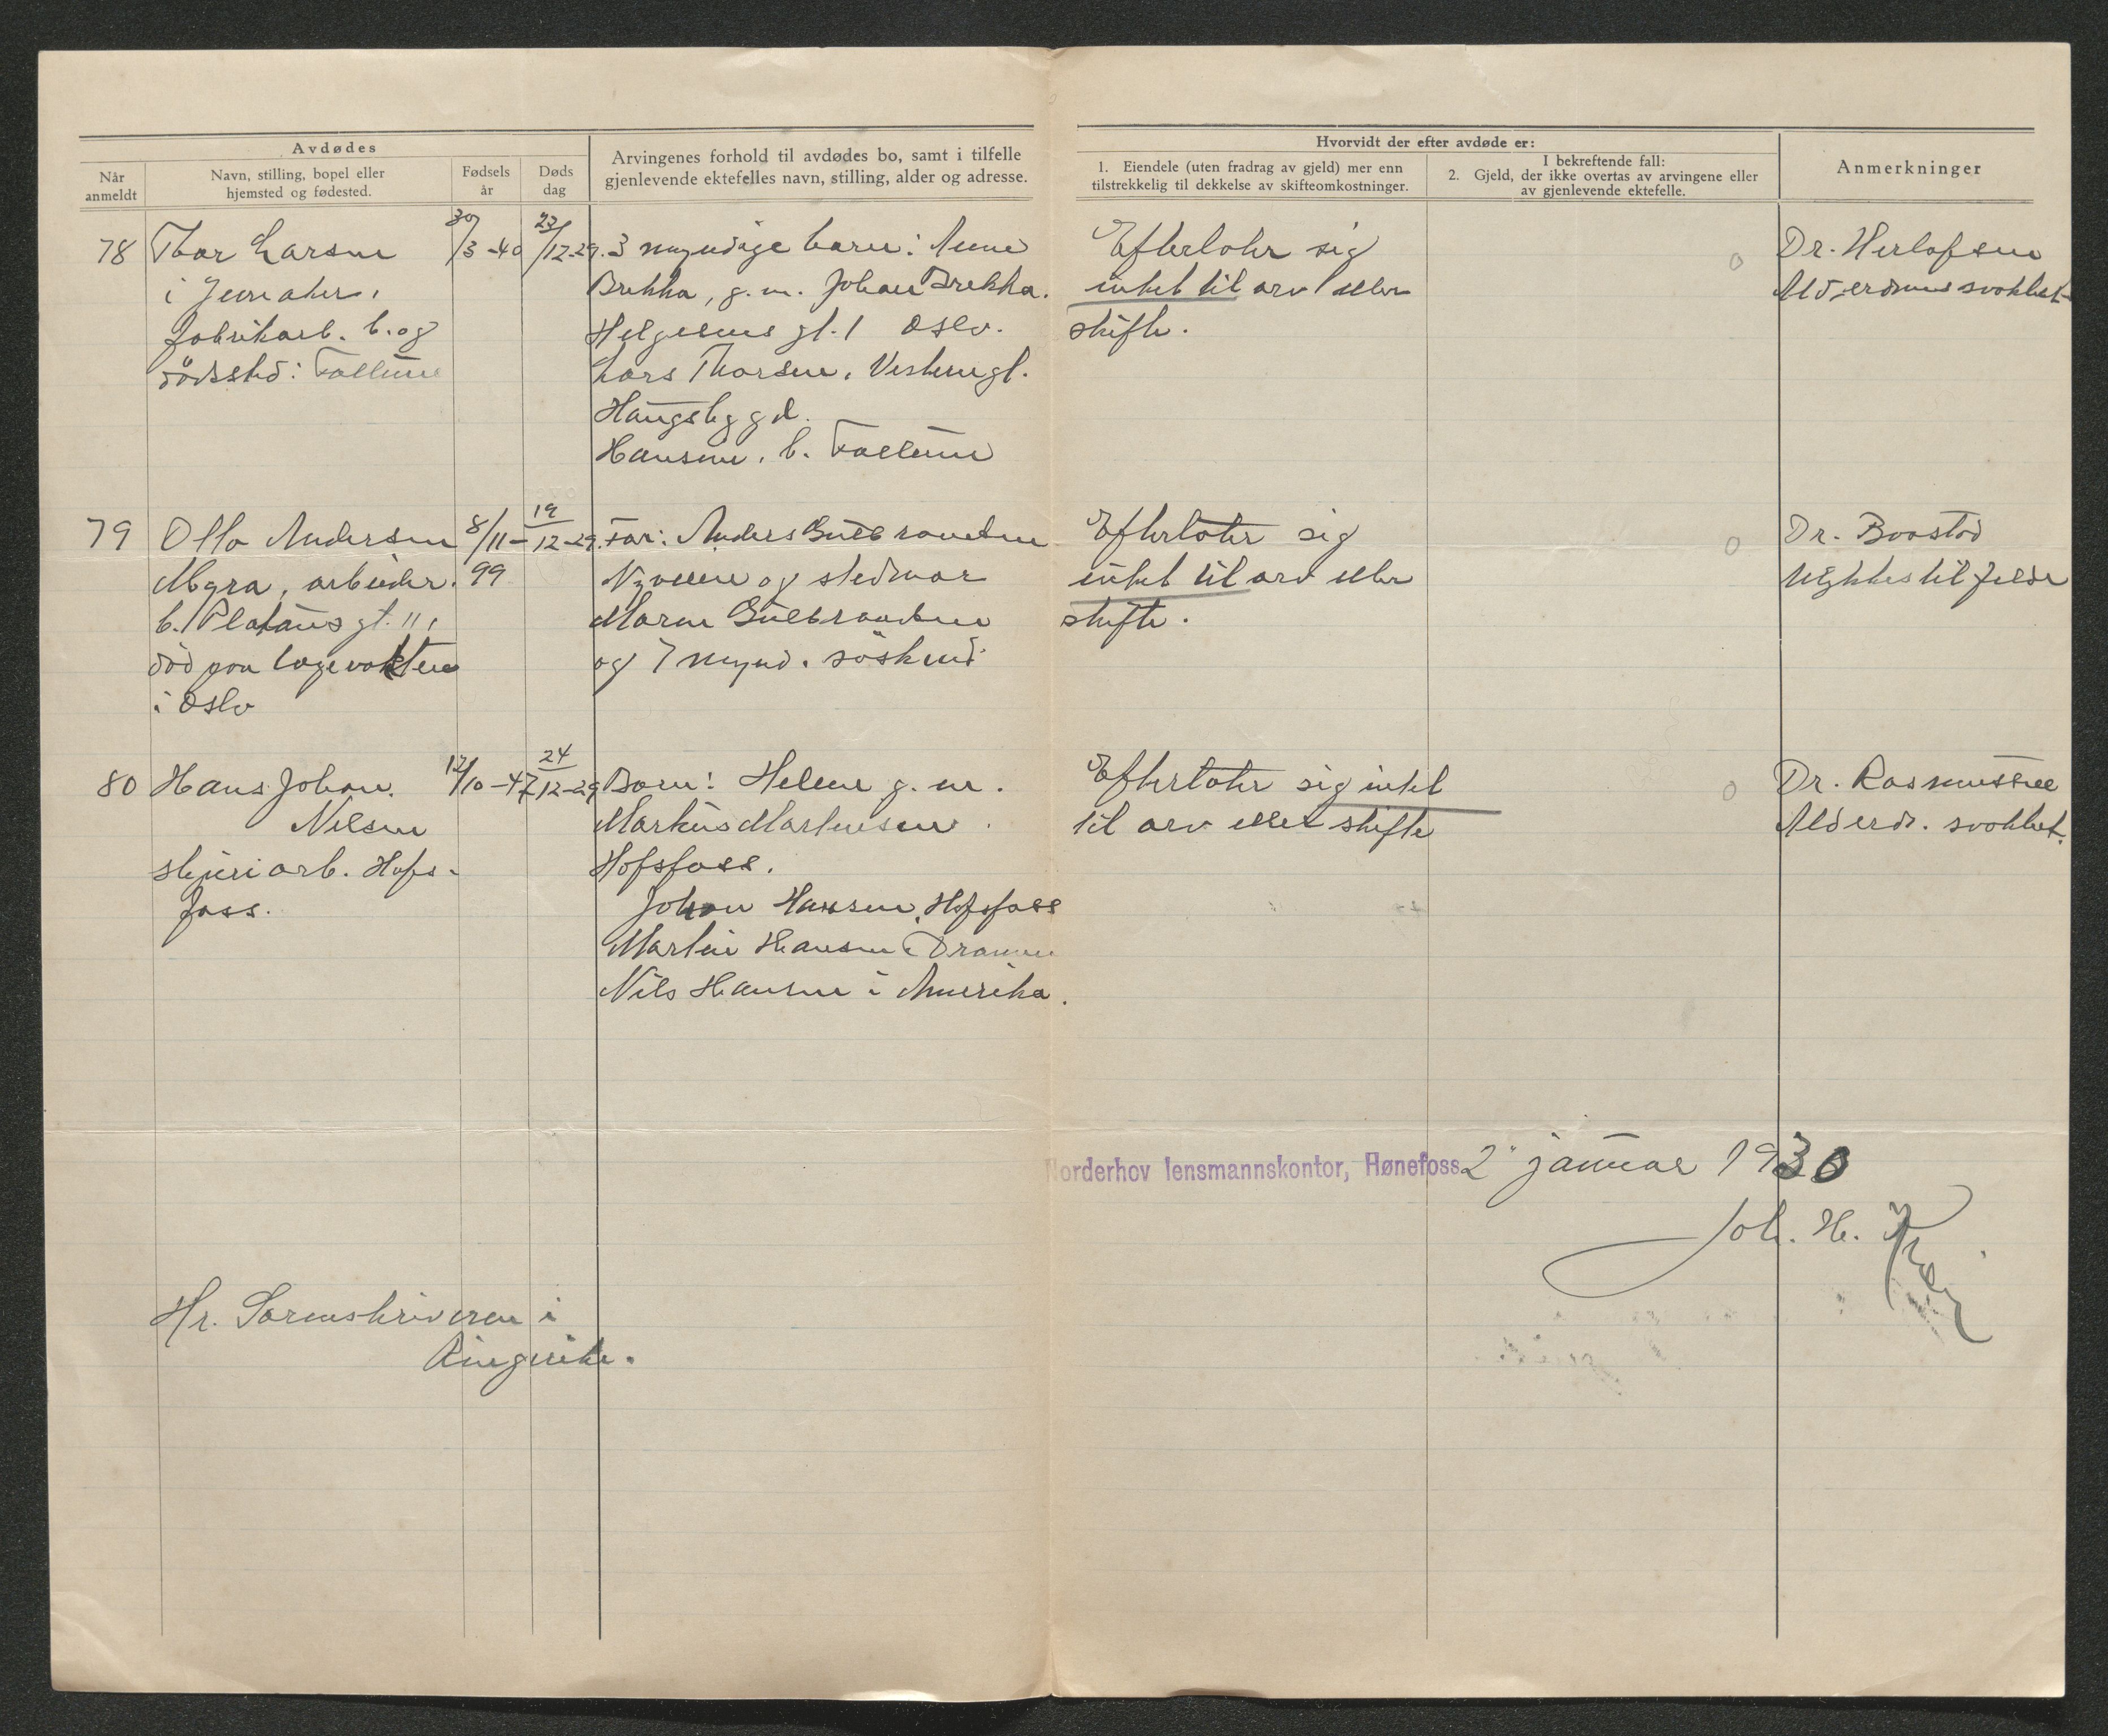 Avdødes
Når anmeldt
Navn, stilling, bopel eller hjemsted og fødested.
Fødsels år
Døds dag
Arvingenes forhold til avdødes bo, samt i tilfelle
gjenlevende ektefelles navn, stilling, alder og adresse.
Hvorvidt der efter avdøde er:
1. Eiendele (uten fradrag av gjeld) mer enn
tilstrekkelig til dekkelse av skifteomkostninger.
I bekreftende fall:
2. Gjeld, der ikke overtas av arvingene eller
av gjenlevende ektefelle.
Anmerkninger
78
Thor Larsen
i
fabrikarb. b. og
dödssted: Follum
30/3-40
23/12-29.
3 myndige barn: Anne
Brekka, g. m. Johan Brekka.
Helgesens gt. 1 Oslo.
Lars Thorsen,
Haugsbygd.
Hansen, b. Follum
Efterlater sig
intet til arv eller
skifte.
0
Dr. Herlofsen
Alderdomssvakhet
79
Otto Andersen
Myra, arbeider.
b. Platous gt. 11,
död paa legevakten
i Oslo
8/11-99
19/12-29.
Far: Anders Gulbrandsen
og stedmor
Maren Gulbrandsen
og 7 mynd. söskend
Efterlater sig
intet til arv eller
skifte.
0
Dr.
Ulykkestilfelde
80
Hans Johan
Nilsen
sliperiarb. Hofs-
foss.
12/10-47
24/12-29
Barn: Helene g. m.
Markus Martinsen.
Hofsfoss.
Johan Hansen, Hofsfoss
Martin Hansen, Drammen
Nils Hansen i Amerika.
Efterlater sig intet
til arv eller skifte
0
Dr. Rasmussen
Alderd. svakhet.
Norderhov lensmannskontor, Hønefoss 2 januar 1930
Joh. H.
Hr. Sorenskriveren i
Ringerike.